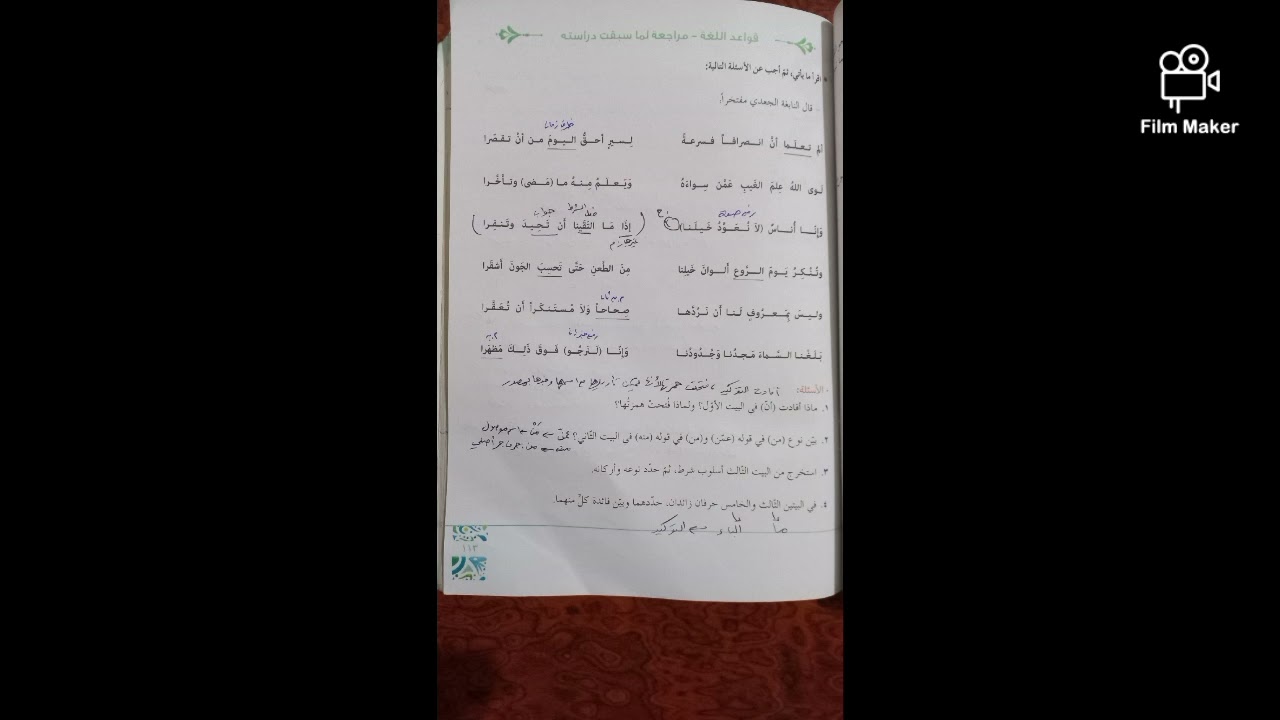 قواعد اللغة - مراجعة لما سبقت دراسته
اقرأ ما يأتي، ثم أجب عن الأسئلة التالية:
قال النابغة الجعدي مفتخراً:
ظرف زمان
ألم تعلما أن انصرافاً فسرعةً لسيرٍ أحقُّ اليومَ من أن تقصّرا
لوى اللهُ علمَ الغيبِ عمّن سواءَهُ ويعلمُ منهُ ما (مضى) وتأخّرا
جواب
وإنّا أُناسٌ (لا نُعوّدُ خيلَنا) (إذا ما التقينا أن تحيدَ وتنفِرا)
وتُنكِرُ يومَ الرّوعِ ألوانَ خيلِنا مِنَ الطّعنِ حتّى تحسِبَ الجَونَ أشقَرا
وليسَ بمعروفٍ لنا أن نرُدّها صِحاحاً ولا مُستنكَراً أن تُعقَّرا
بلغْنا السّماءَ مجدُنا وجُدودُنا وإنّا (لنرجُو) فوقَ ذلكَ مَظهَرا
الأسئلة: أفادت التوكيد
١. ماذا أفادت (أنّ) في البيت الأوّل؟ ولماذا فُتحتْ همزتُها؟
٢. بيّن نوع (من) في قوله (عمّن) و(من) في قوله (منه) في البيت الثّاني؟
٣. استخرج من البيت الثّالث أسلوب شرط، ثمّ حدّد نوعه وأركانه.
٤. في البيتين الثّالث والخامس حرفان زائدان، حدّدهما وبيّن فائدة كلٍّ منهما.
ما الباء التوكيد
١١٣
Film Maker